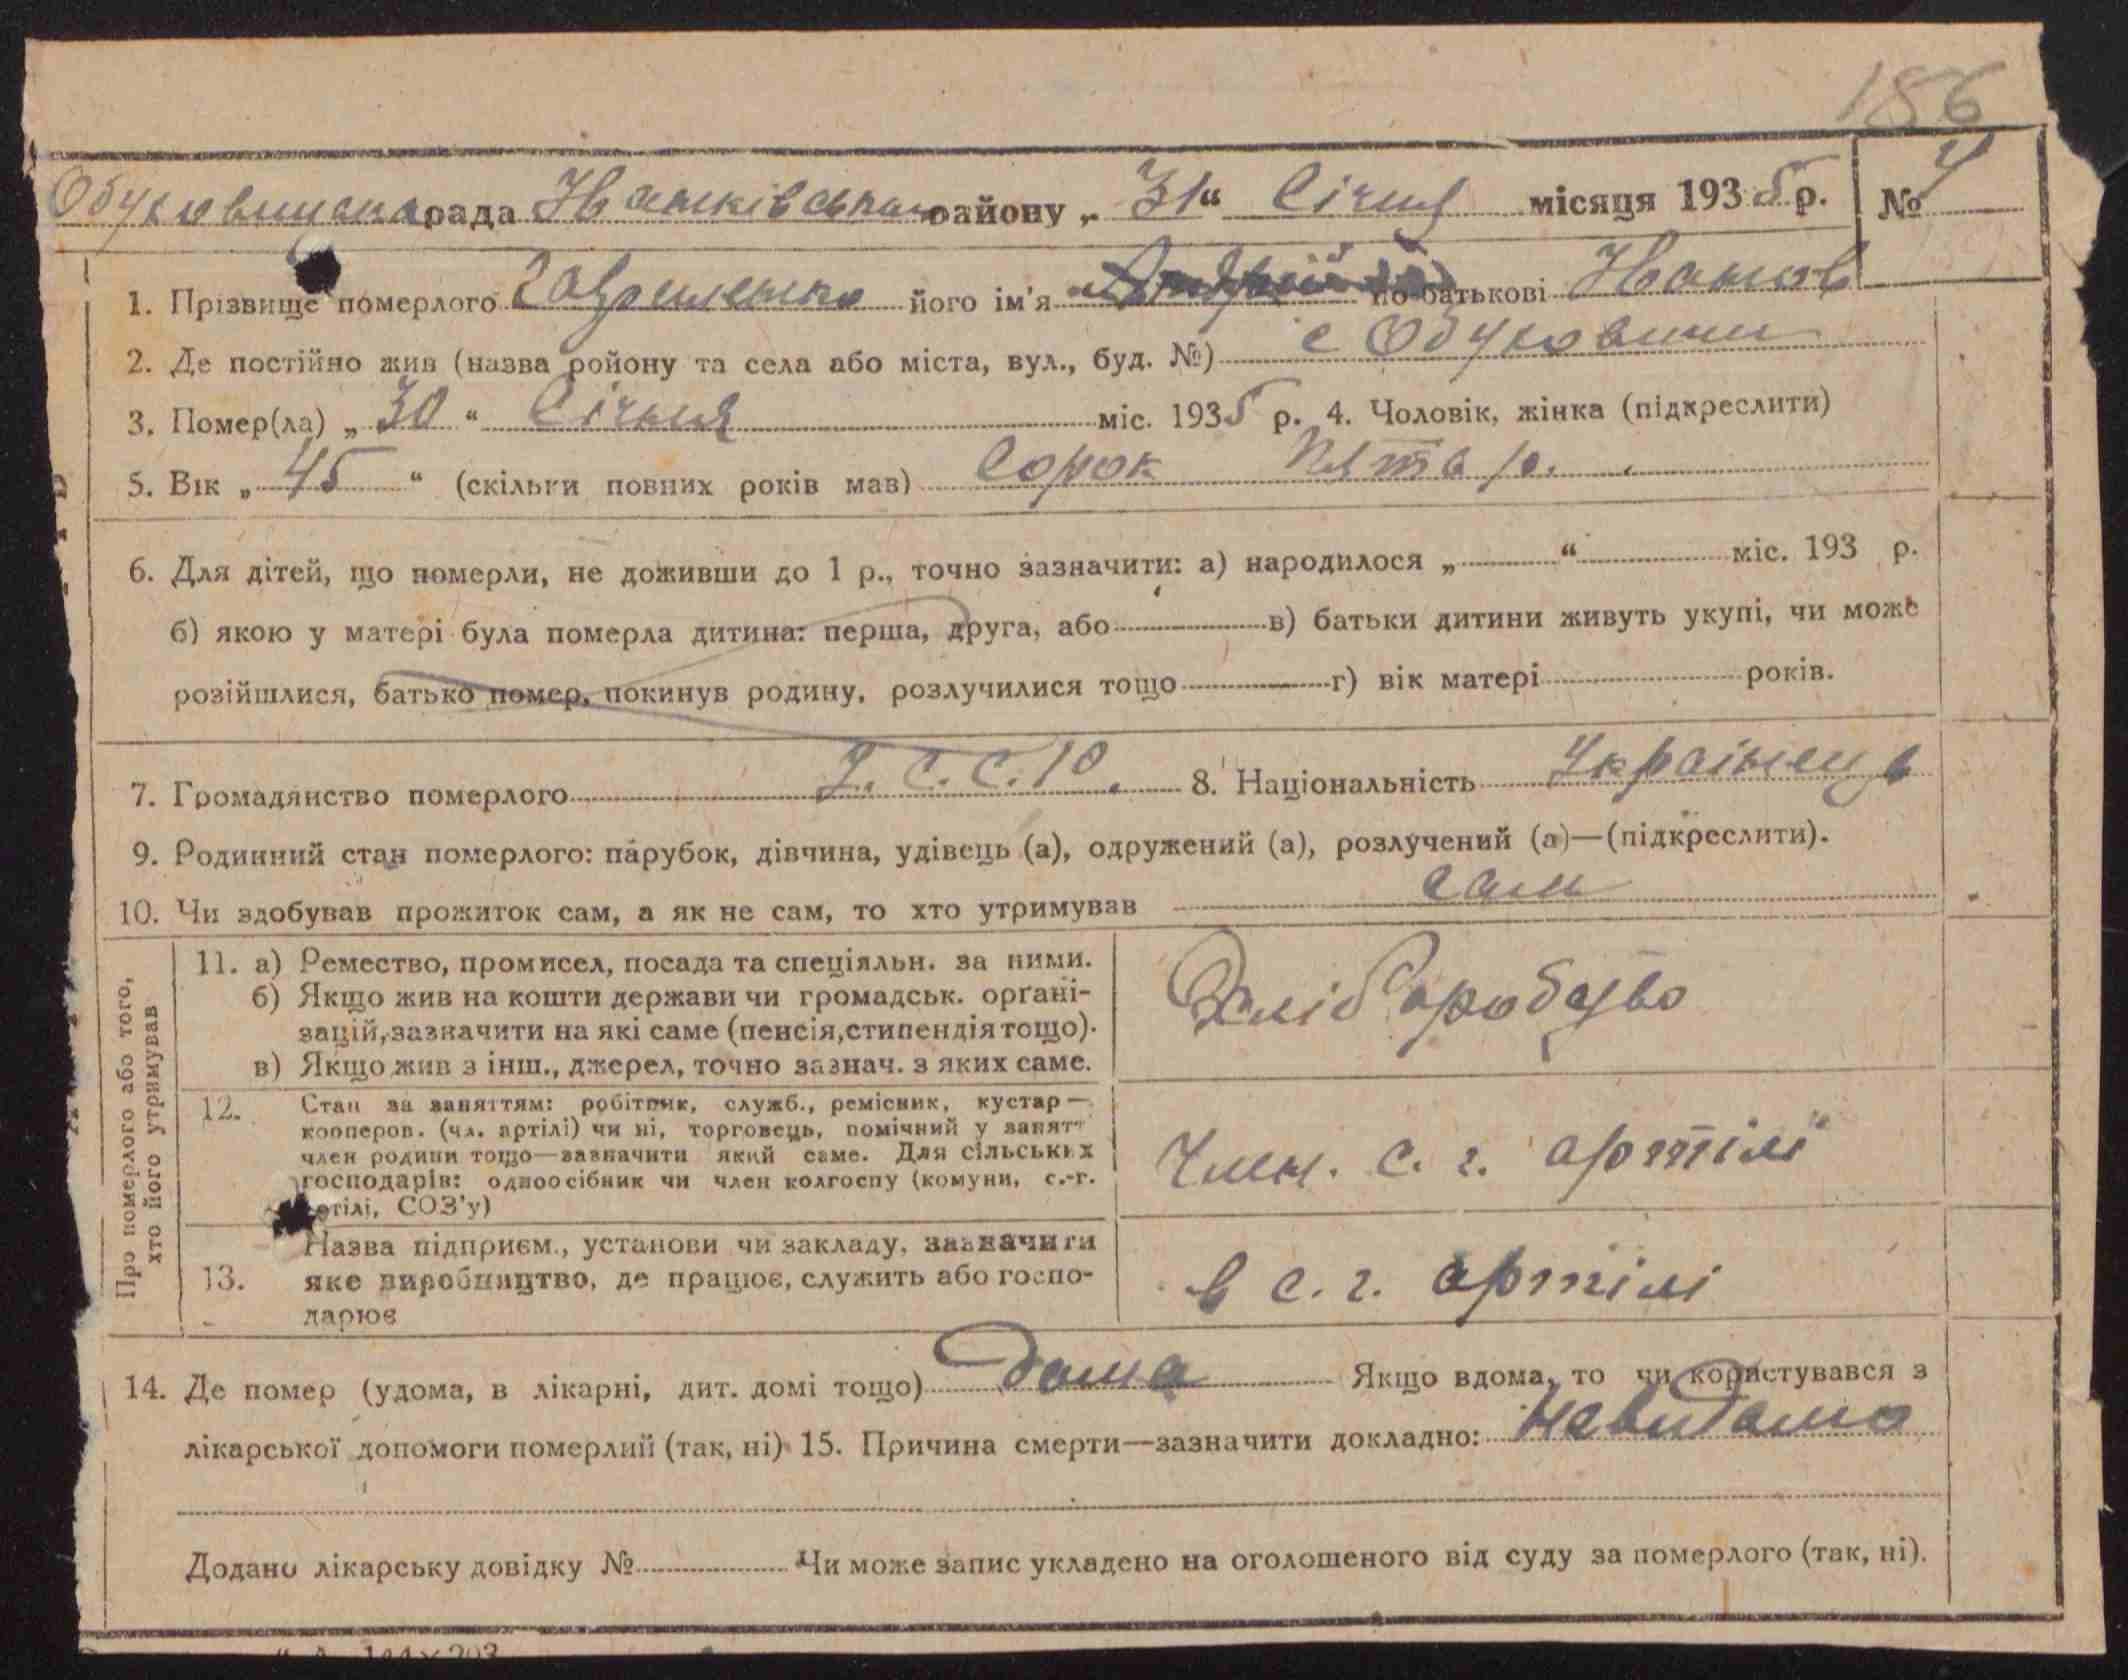 186
Обуховицька рада Іванківського району „31“ Січня місяця 1935 р. № 4
1. Прізвище померлого Гавриленко його ім'я Андрій по-батькові Іванов
2. Де постійно жив (назва ройону та села або міста, вул., буд. №) с Обуховичи
3. Помер(ла) „30“ Січня міс. 1935 р. 4. Чоловік, жінка (підкреслити)
5. Вік „45“ (скільки повних років мав) Сорок Пять р.
6. Для дітей, що померли, не доживши до 1 р., точно зазначити: а) народилося „ “ міс. 193 р.
б) якою у матері була померла дитина: перша, друга, або в) батьки дитини живуть укупі, чи може
розійшлися, батько помер, покинув родину, розлучилися тощо г) вік матері років.
7. Громадянство померлого У.С.С.Р. 8. Національність Українець
9. Родинний стан померлого: парубок, дівчина, удівець (а), одружений (а), розлучений (а)—(підкреслити).
10. Чи здобував прожиток сам, а як не сам, то хто утримував сам
Про померлого або того,
хто його утримував
11. а) Ремество, промисел, посада та спеціяльн. за ними.
б) Якщо жив на кошти держави чи громадськ. орґані-
зацій, зазначити на які саме (пенсія, стипендія тощо).
в) Якщо жив з інш., джерел, точно зазнач. з яких саме.
Хліборобство
12. Стан за заняттям: робітник, служб., ремісник, кустар—
кооперов. (чл. артілі) чи ні, торговець, помічний у занятт
член родини тощо—зазначити який саме. Для сільських
господарів: одноосібник чи член колгоспу (комуни, с.-г.
ртілі, СОЗ'у)
Член. с. г. артілі
13. Назва підприєм., установи чи закладу, зазначити
яке виробництво, де працює, служить або госпо-
дарює
в с. г. артілі
14. Де помер (удома, в лікарні, дит. домі тощо) дома Якщо вдома, то чи користувався з
лікарської допомоги померлий (так, ні) 15. Причина смерти—зазначити докладно: невидомо
Додано лікарську довідку № Чи може запис укладено на оголошеного від суду за померлого (так, ні).